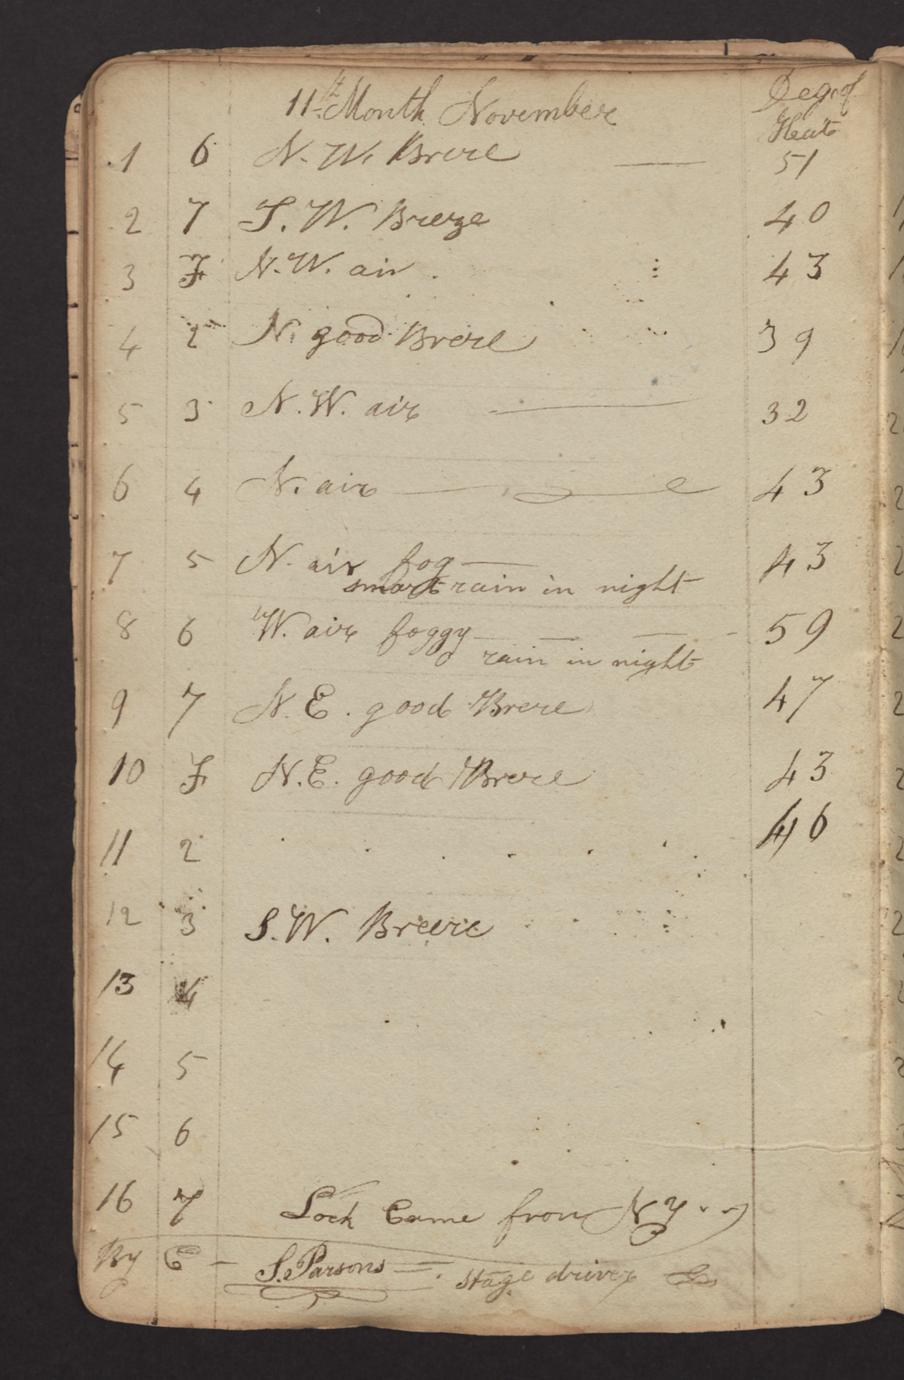 11th Month November Deg. of
Heat
1 6 N. W. Breze 51
2 7 S. W. Breze 40
3 F N. W. air 43
4 2 N. good Breze 39
5 3 N. W. air 32
6 4 N. air 43
7 5 N. air fog 43
smart rain in night
8 6 W. air foggy 59
rain in night
9 7 N. E. good Breze 47
10 F N. E. good Breze 43
46
11 2
12 3 S. W. Breeze
13 4
14 5
15 6
16 7 Lock Came from N Y
By E S. Parsons stage driver